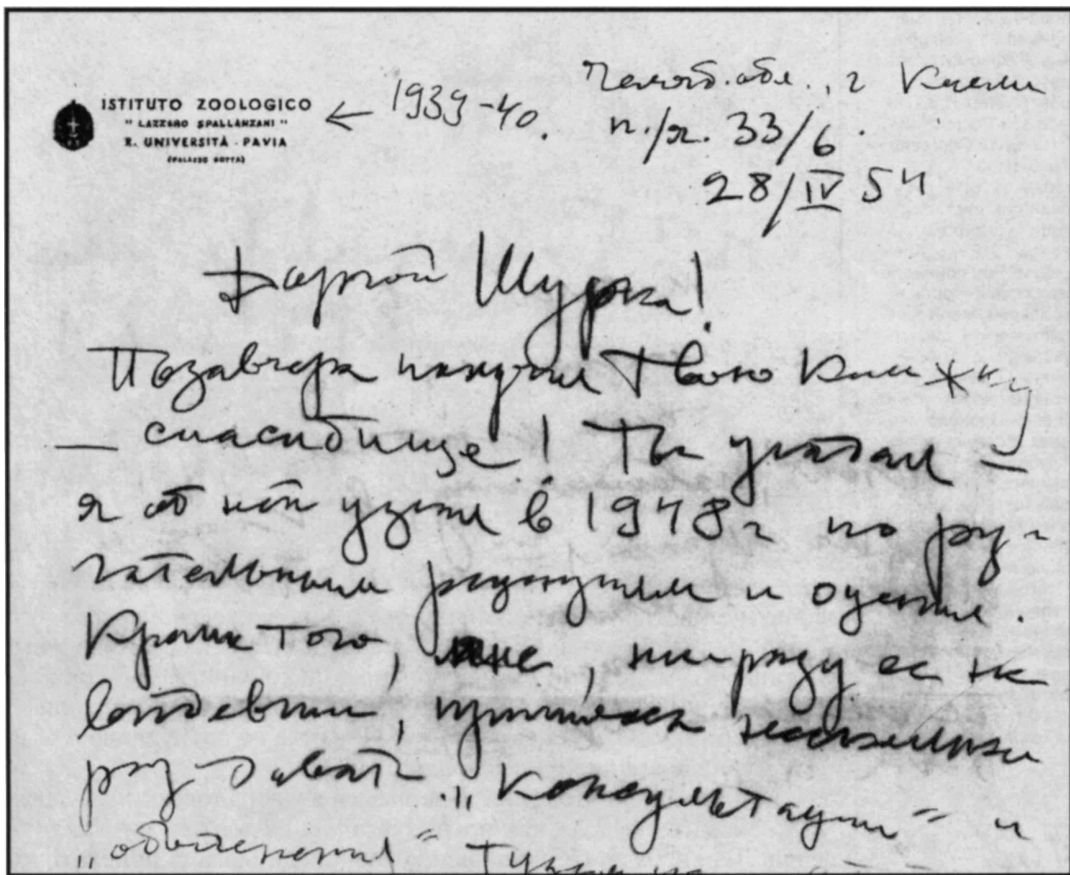 ISTITUTO ZOOLOGICO
"LAZZARO SPALLANZANI"
R. UNIVERSITÀ - PAVIA
(PALAZZO BOTTA)
← 1939-40.
Челяб. обл., г. Касли
п./я. 33/6.
28/IV 54
Дорогой Шурка!
Позавчера получил твою книжку
— спасибище! Ты угадал —
я об ней узнал в 1948 г по ру-
гательным рецензиям и оценил.
Кроме того, мне, ни разу ее не
видевши, пришлось несколько
раз давать „консультации" и
„объяснения"